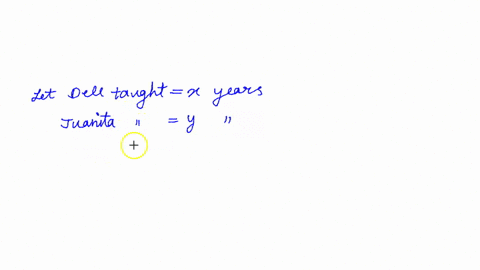 Let Dell taught = x years
Juanita " = y "